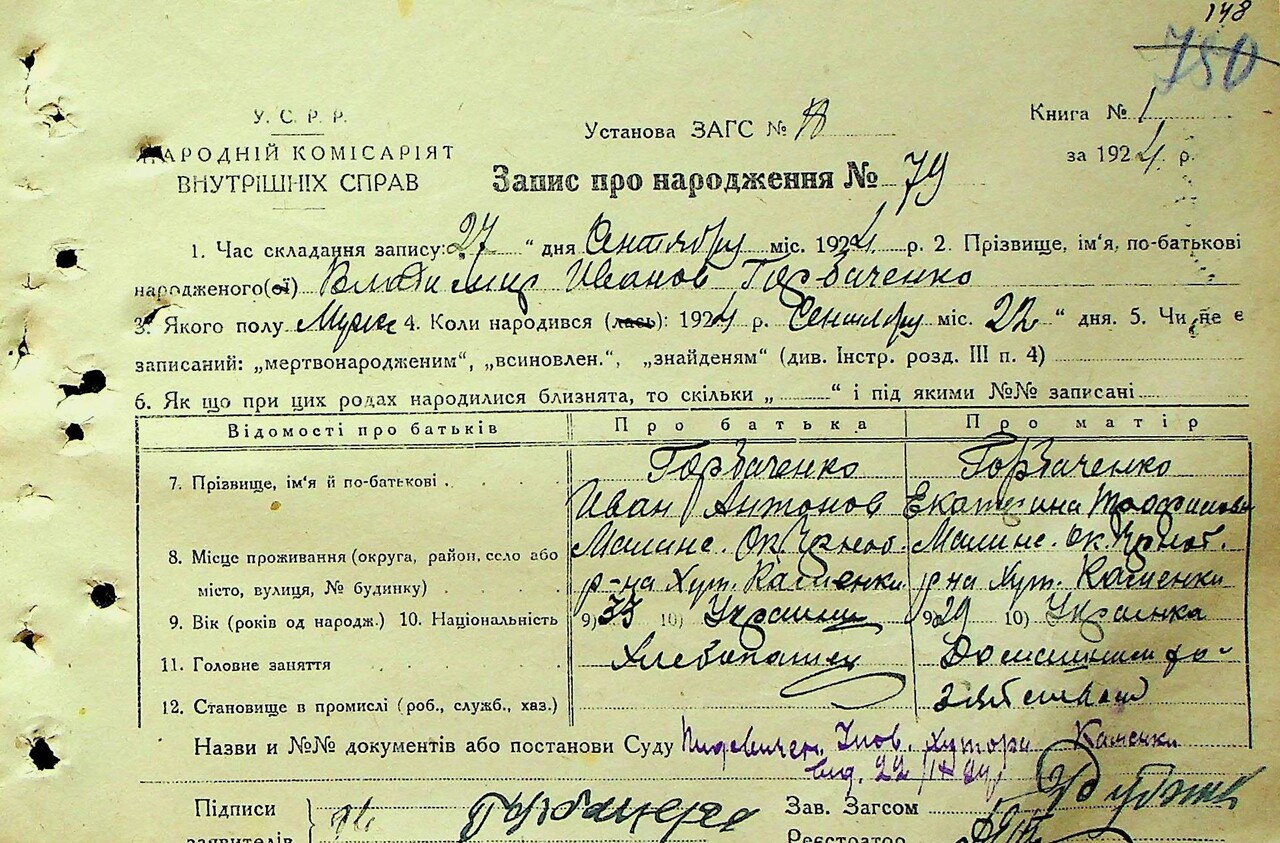 148
750
У. С. Р. Р.
НАРОДНІЙ КОМІСАРІЯТ
ВНУТРІШНІХ СПРАВ
Установа ЗАГС №
Книга № 1
за 1924 р.
Запис про народження № 79
1. Час складання запису: 27 " дня Сентября міс. 1924 р. 2. Прізвище, ім'я, по-батькові
народженого(ої) Владимир Иванов Горбаченко
3. Якого полу Мужс 4. Коли народився (лась): 1924 р. Сентября міс. 22 " дня. 5. Чи не є
записаний: „мертвонародженим", „всиновлен.", „знайденям" (див. Інстр. розд. III п. 4)
6. Як що при цих родах народилися близнята, то скільки „ " і під якими №№ записані
Відомості про батьків Про батька Про матір
7. Прізвище, ім'я й по-батькові Горбаченко Горбаченко
Иван Антонов Екатерина Трофимовн
8. Місце проживання (округа, район, село або Малинс. Ок. Чрноб. Малинс. Ок. Чрноб.
місто, вулиця, № будинку) р-на Хут. Каменки р-на Хут. Каменки
9. Вік (років од народж.) 10. Національність 9) 33 10) Украинец 9) 29 10) Украинка
11. Головне заняття Хлебопашец Домашним хо-
12. Становище в промислі (роб., служб., хаз.) зяйством
Назви и №№ документів або постанови Суду Упов. хутора Каменки
вид. 22/IX 24
Підписи
заявителів
Горбаченко
Зав. Загсом
Реєстратор